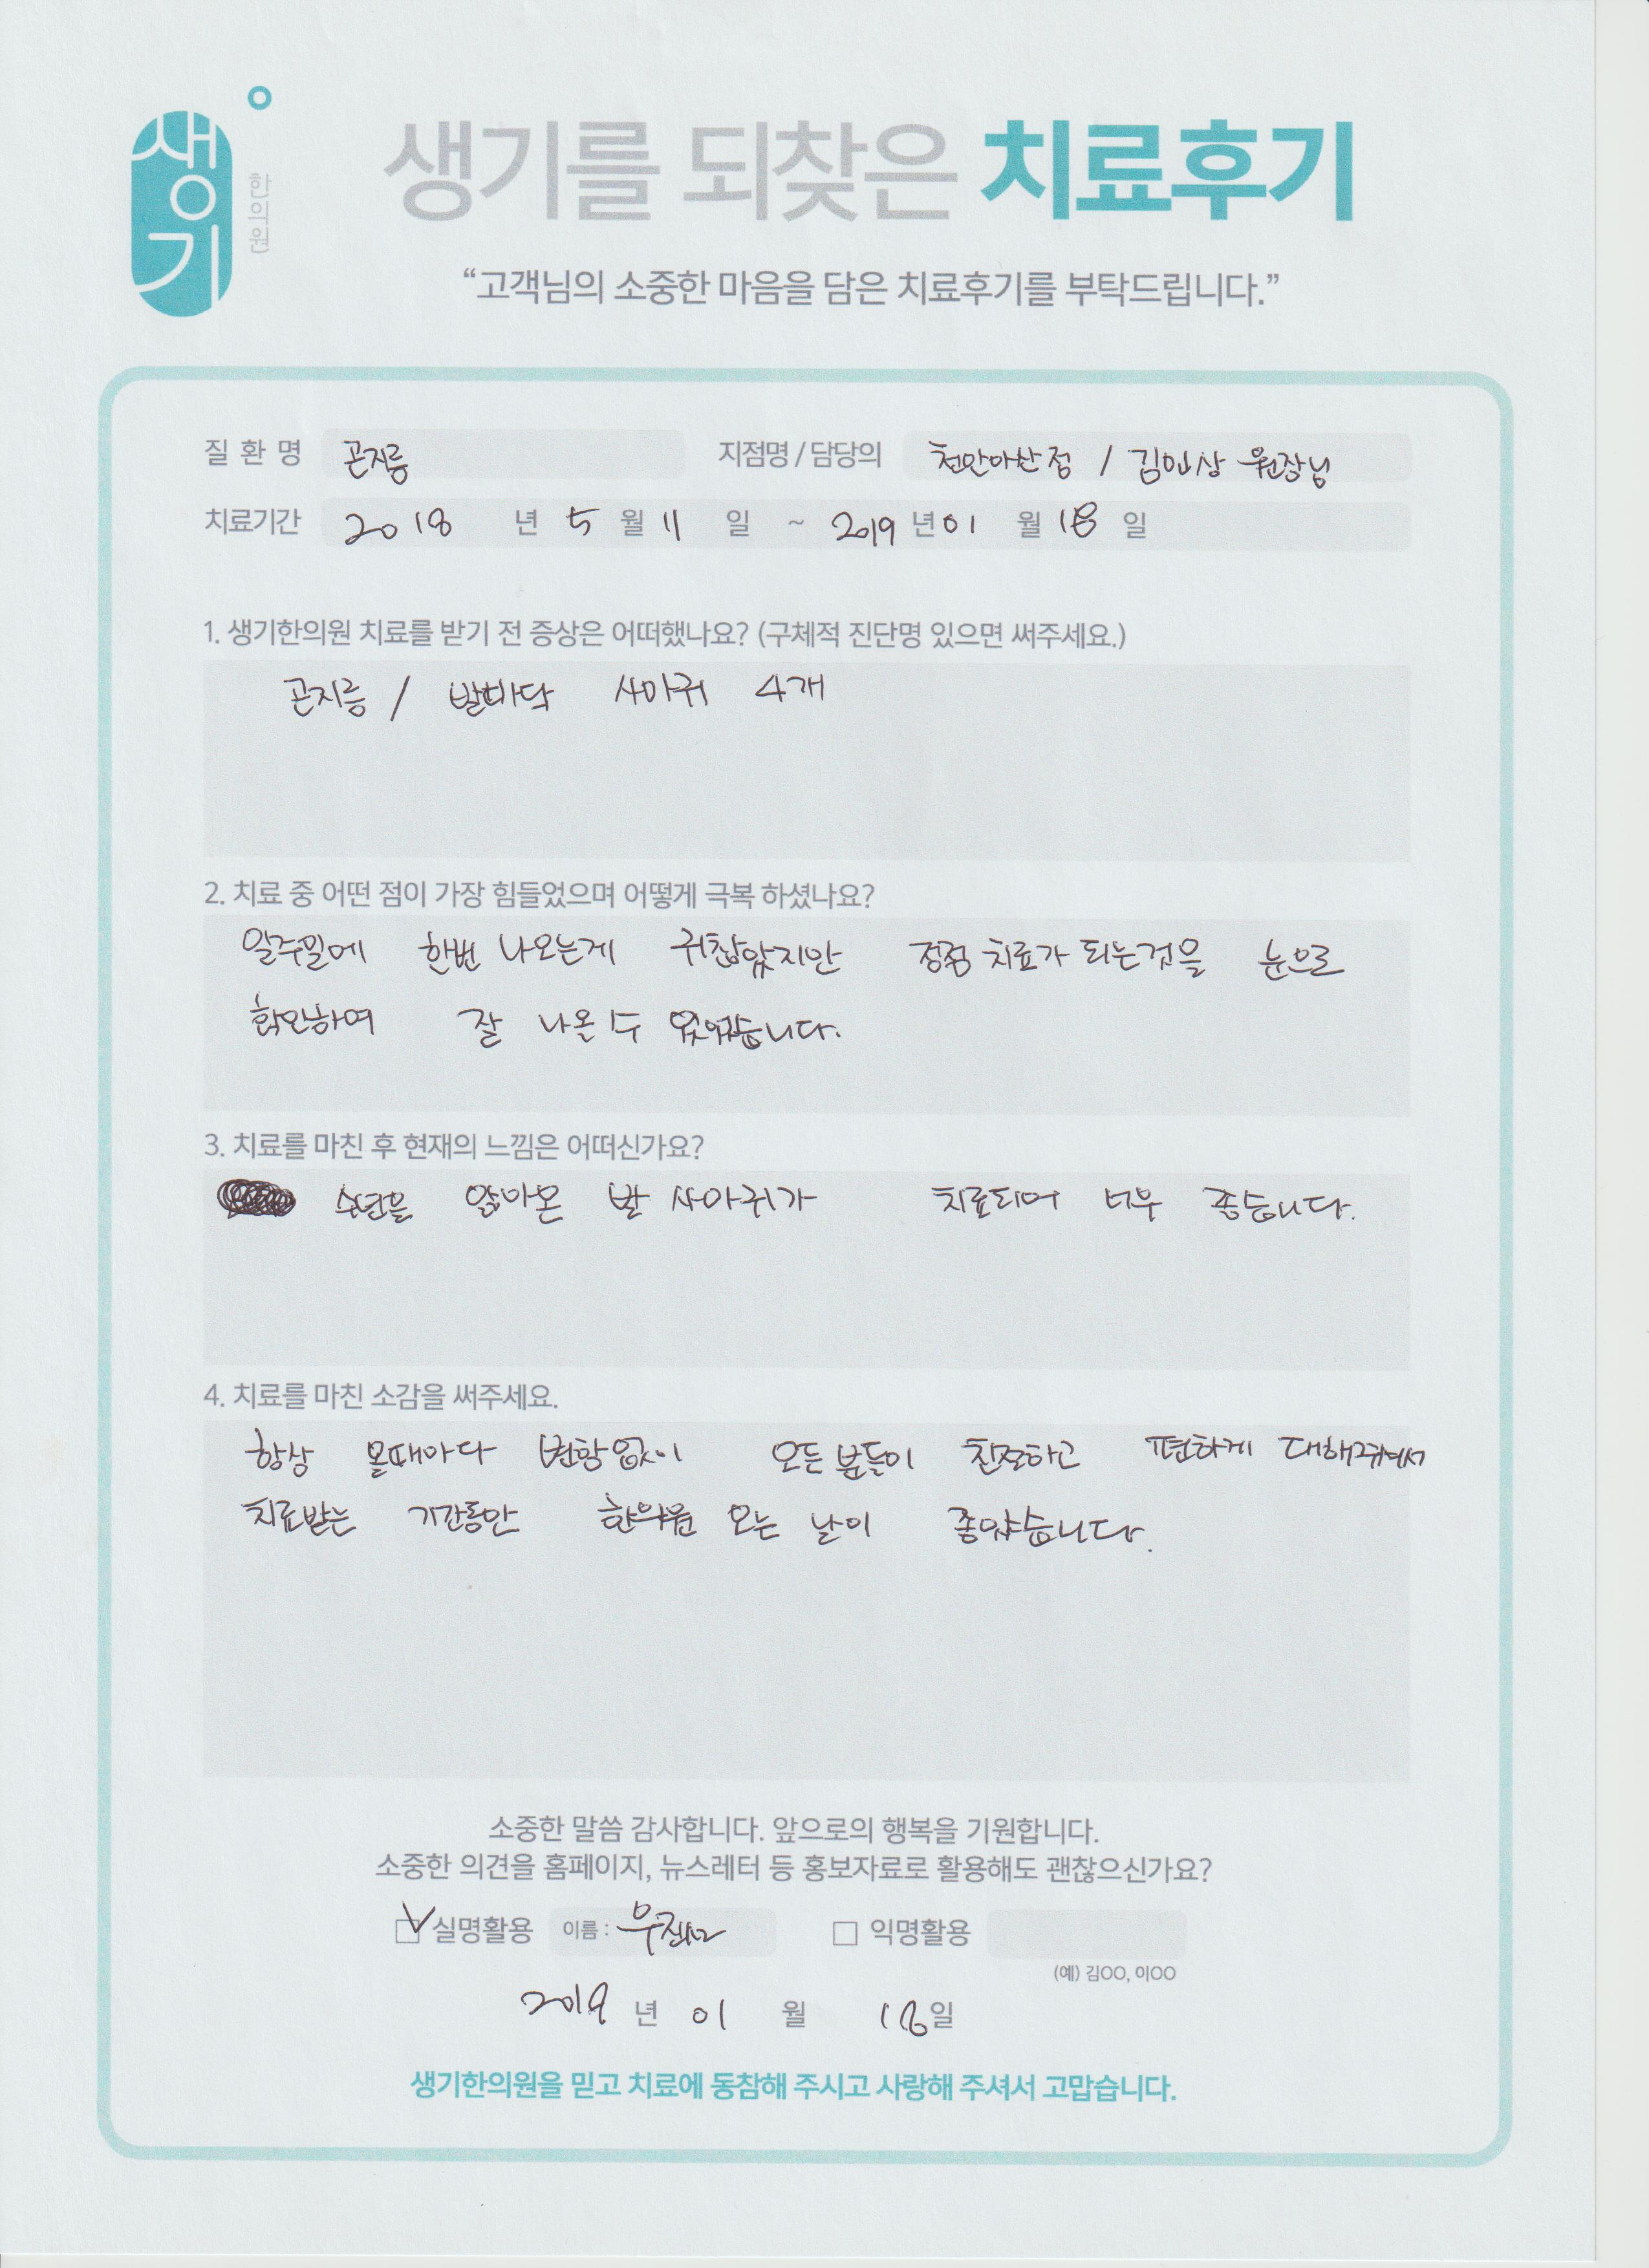 생기
한의원
생기를 되찾은 치료후기
“고객님의 소중한 마음을 담은 치료후기를 부탁드립니다.”
질 환 명 곤지름 지점명 / 담당의 천안아산점 / 김인상 원장님
치료기간 2018 년 5 월 11 일 ~ 2019 년 01 월 18 일
1. 생기한의원 치료를 받기 전 증상은 어떠했나요? (구체적 진단명 있으면 써주세요.)
곤지름 / 발바닥 사마귀 4개
2. 치료 중 어떤 점이 가장 힘들었으며 어떻게 극복 하셨나요?
일주일에 한번 나오는게 귀찮았지만 점점 치료가 되는것을 눈으로
확인하여 잘 나올 수 있었습니다.
3. 치료를 마친 후 현재의 느낌은 어떠신가요?
수년을 앓아온 발 사마귀가 치료되어 너무 좋습니다.
4. 치료를 마친 소감을 써주세요.
항상 올때마다 변함없이 모든 분들이 친절하고 편하게 대해줘서
치료받는 기간동안 한의원 오는 날이 좋았습니다.
소중한 말씀 감사합니다. 앞으로의 행복을 기원합니다.
소중한 의견을 홈페이지, 뉴스레터 등 홍보자료로 활용해도 괜찮으신가요?
실명활용 이름 : 익명활용
(예) 김OO, 이OO
2019 년 01 월 18 일
생기한의원을 믿고 치료에 동참해 주시고 사랑해 주셔서 고맙습니다.